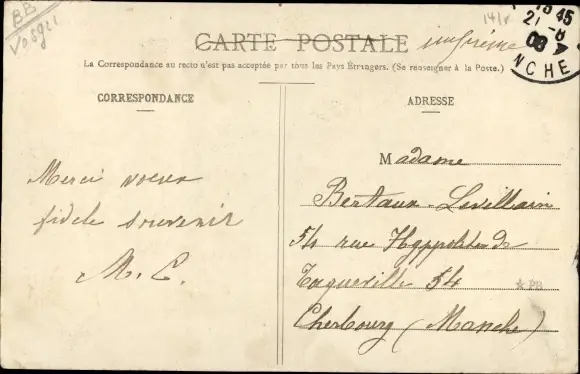 BB
Vosges
141v
18 45
21-8
08
NCHE
CARTE POSTALE imprimé
La Correspondance au recto n'est pas acceptée par tous les Pays Étrangers. (Se renseigner à la Poste.)
CORRESPONDANCE
Merci voeux
fidele souvenir
M. C.
ADRESSE
Madame
Bertaux-Levillain
54 rue Hyppolite de
Tocqueville 54
PB
Cherbourg (Manche)